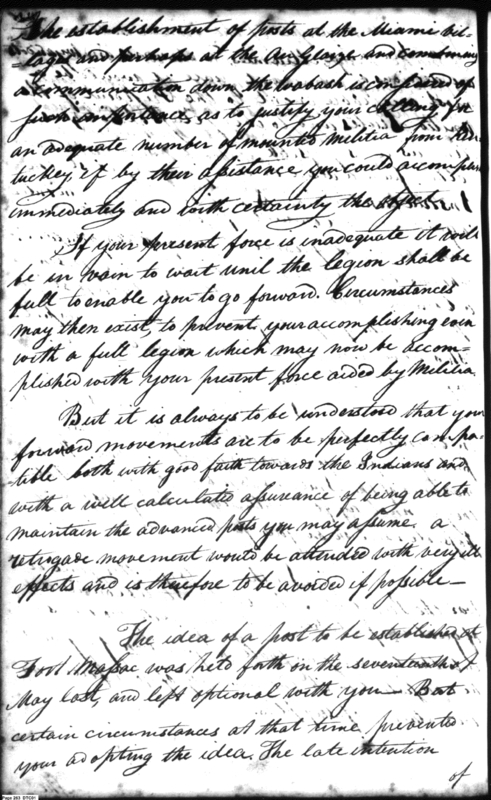 The establishment of posts at the Miami vil-
lages and perhaps at the Au Glaize and continuing
a communication down the wabash is considered of
such importance as to justify your calling for
an adequate number of mounted Militia from Ken-
tuckey if by their assistance you could accomplish
immediately and with certainty the object.
If your present force is inadequate it will
be in vain to wait until the legion shall be
full to enable you to go forward. Circumstances
may then exist, to prevent your accomplishing even
with a full legion which may now be accom-
plished with your present force aided by Militia.
But it is always to be understood that your
forward movements are to be perfectly compa-
-tible both with good faith towards the Indians and
with a well calculated assureance of being able to
maintain the advanced posts you may assume. a
retrogade movement would be attended with very ill
effects and is therefore to be avoided if possible—
The idea of a post to be established at
Fort Massac was held forth on the seventeenth of
May last, and left optional with you — But
certain circumstances at that time prevented
your adopting the idea. The late intention
of
Page 263 DTC01